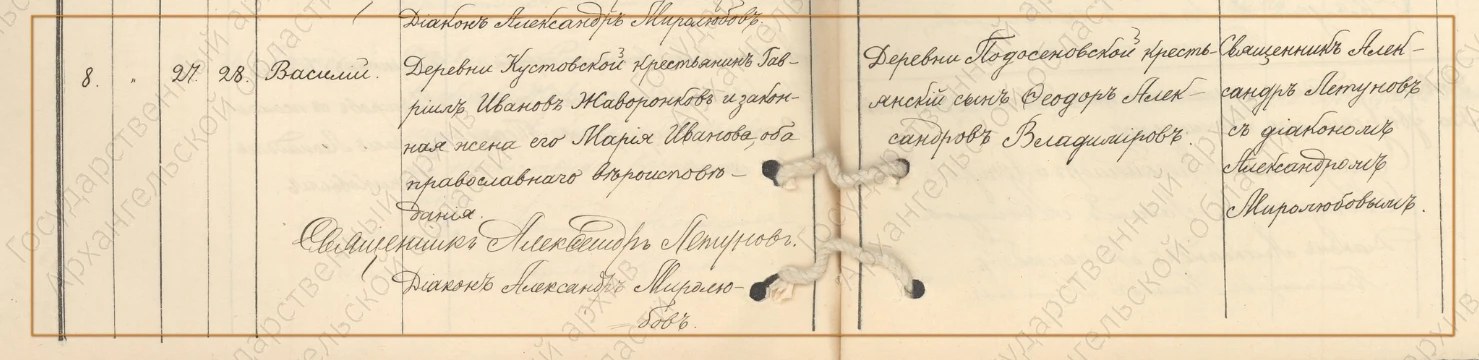 Діаконъ Александръ Миролюбовъ.
8. " 27. 28. Василій.
Деревни Кустовской крестьянинъ Гав-
ріилъ Ивановъ Жаворонковъ и закон-
ная жена его Марія Иванова, оба
православнаго вѣроисповѣ-
данія.
Священникъ Александръ Летуновъ.
Діаконъ Александръ Миролю-
бовъ.
Деревни Подосеновской кресть-
янскій сынъ Ѳеодоръ Алек-
сандровъ Владиміровъ.
Священникъ Алек-
сандръ Летуновъ
съ діакономъ
Александромъ
Миролюбовымъ.
Государственный архив
Архангельской области